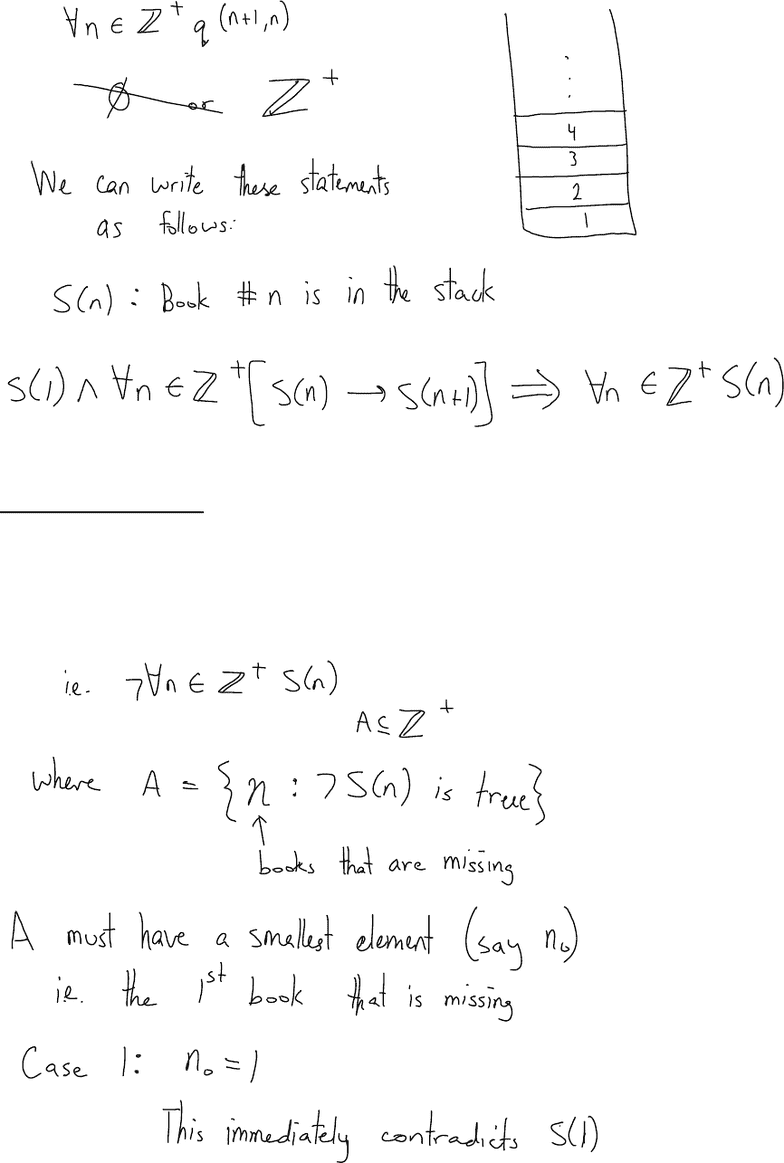 ∀n ∈ ℤ⁺ q(n+1,n)
∅ or ℤ⁺
⋮
4
3
2
1
We can write these statements
as follows:
S(n) : Book #n is in the stack
S(1) ∧ ∀n ∈ ℤ⁺[S(n) → S(n+1)] ⟹ ∀n ∈ ℤ⁺ S(n)
i.e. ¬∀n ∈ ℤ⁺ S(n)
A ⊆ ℤ⁺
where A = {n : ¬S(n) is true}
↑
books that are missing
A must have a smallest element (say n₀)
i.e. the 1st book that is missing
Case 1: n₀ = 1
This immediately contradicts S(1)